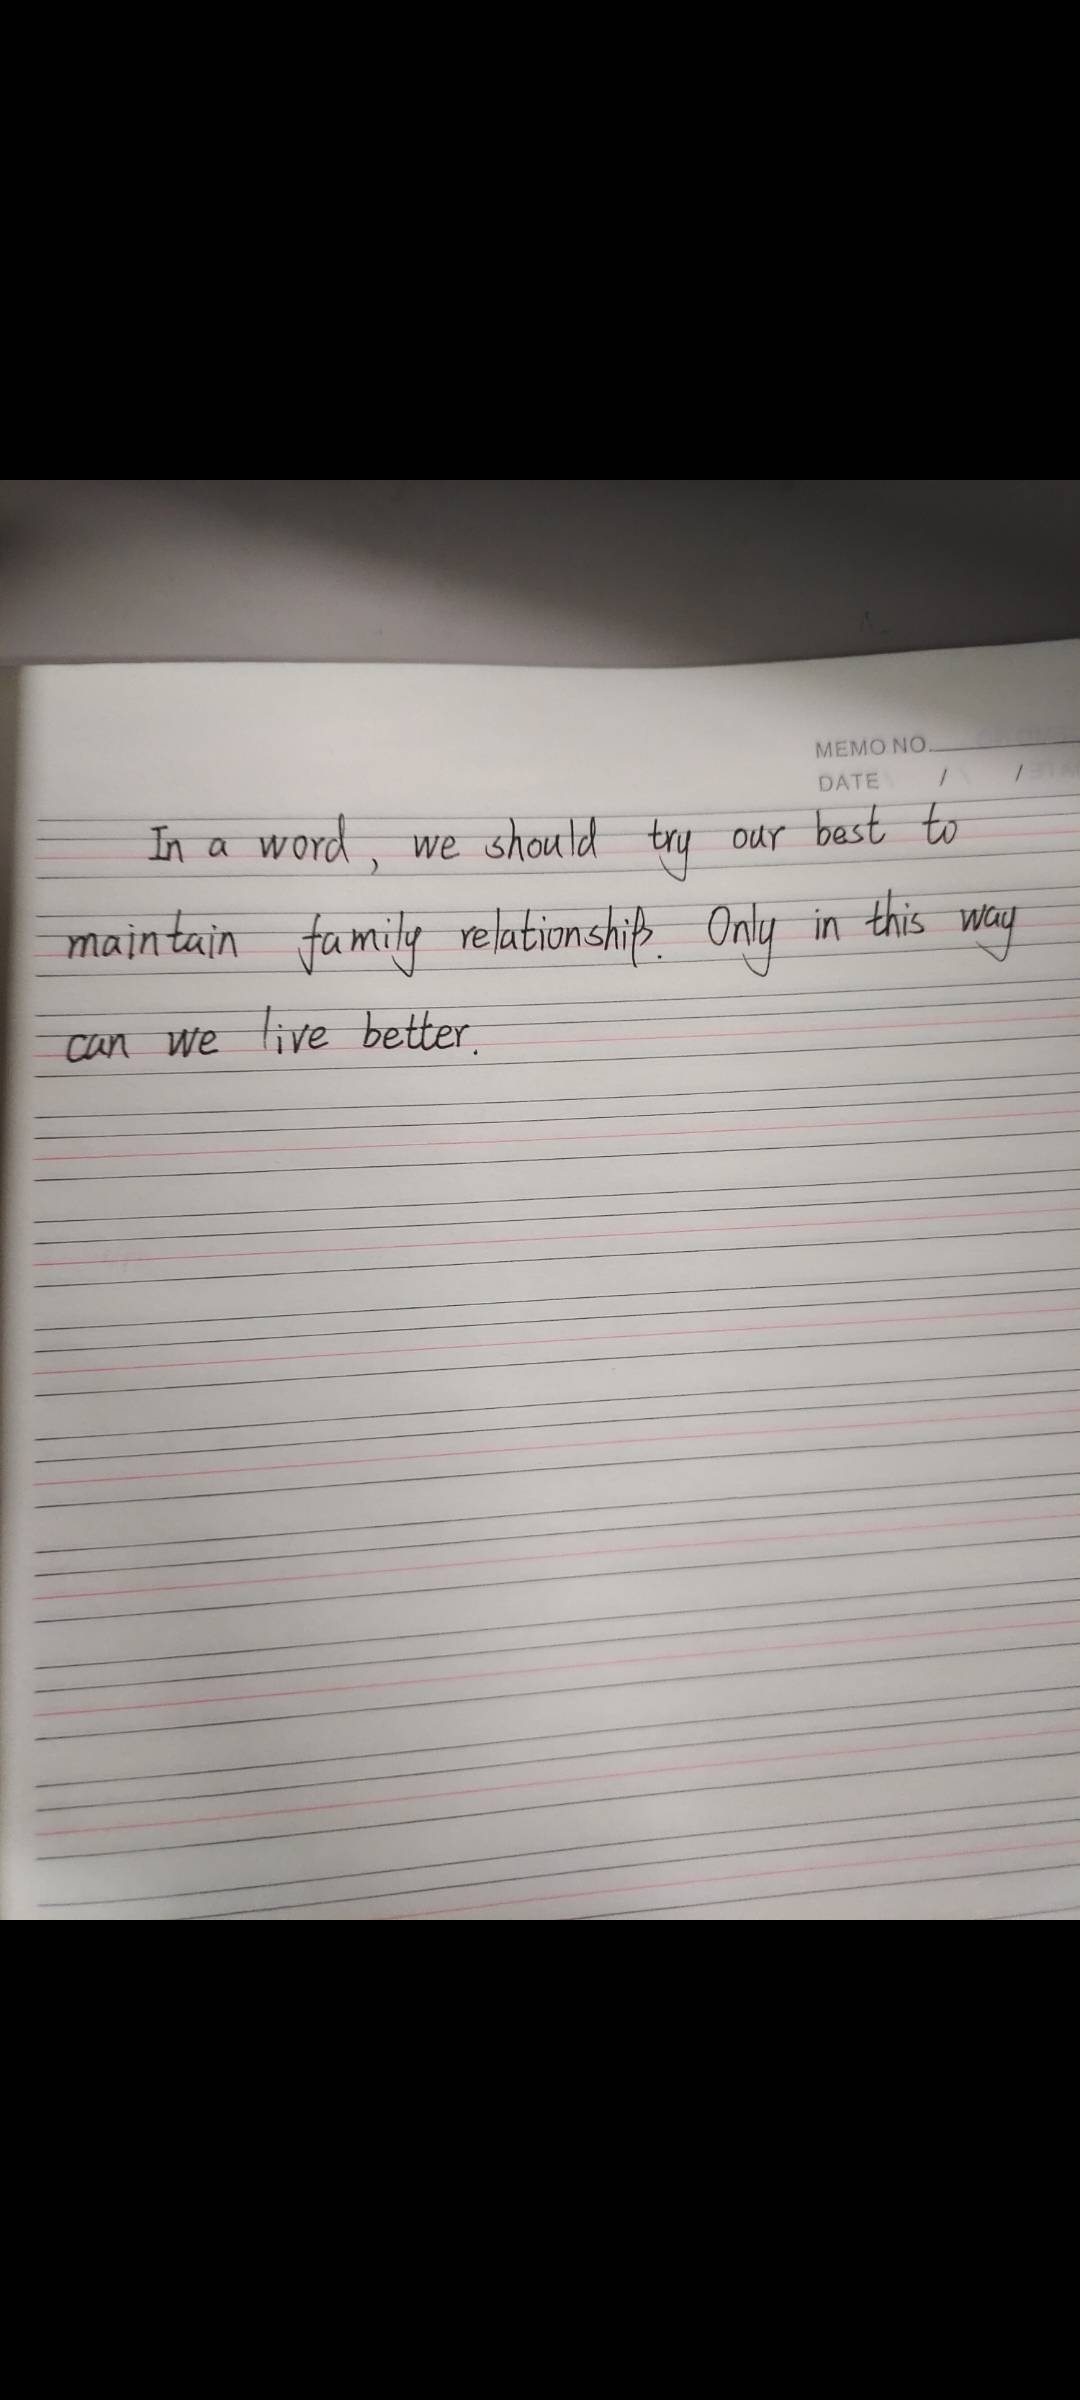 MEMO NO.
DATE / /
In a word, we should try our best to
maintain family relationship. Only in this way
can we live better.